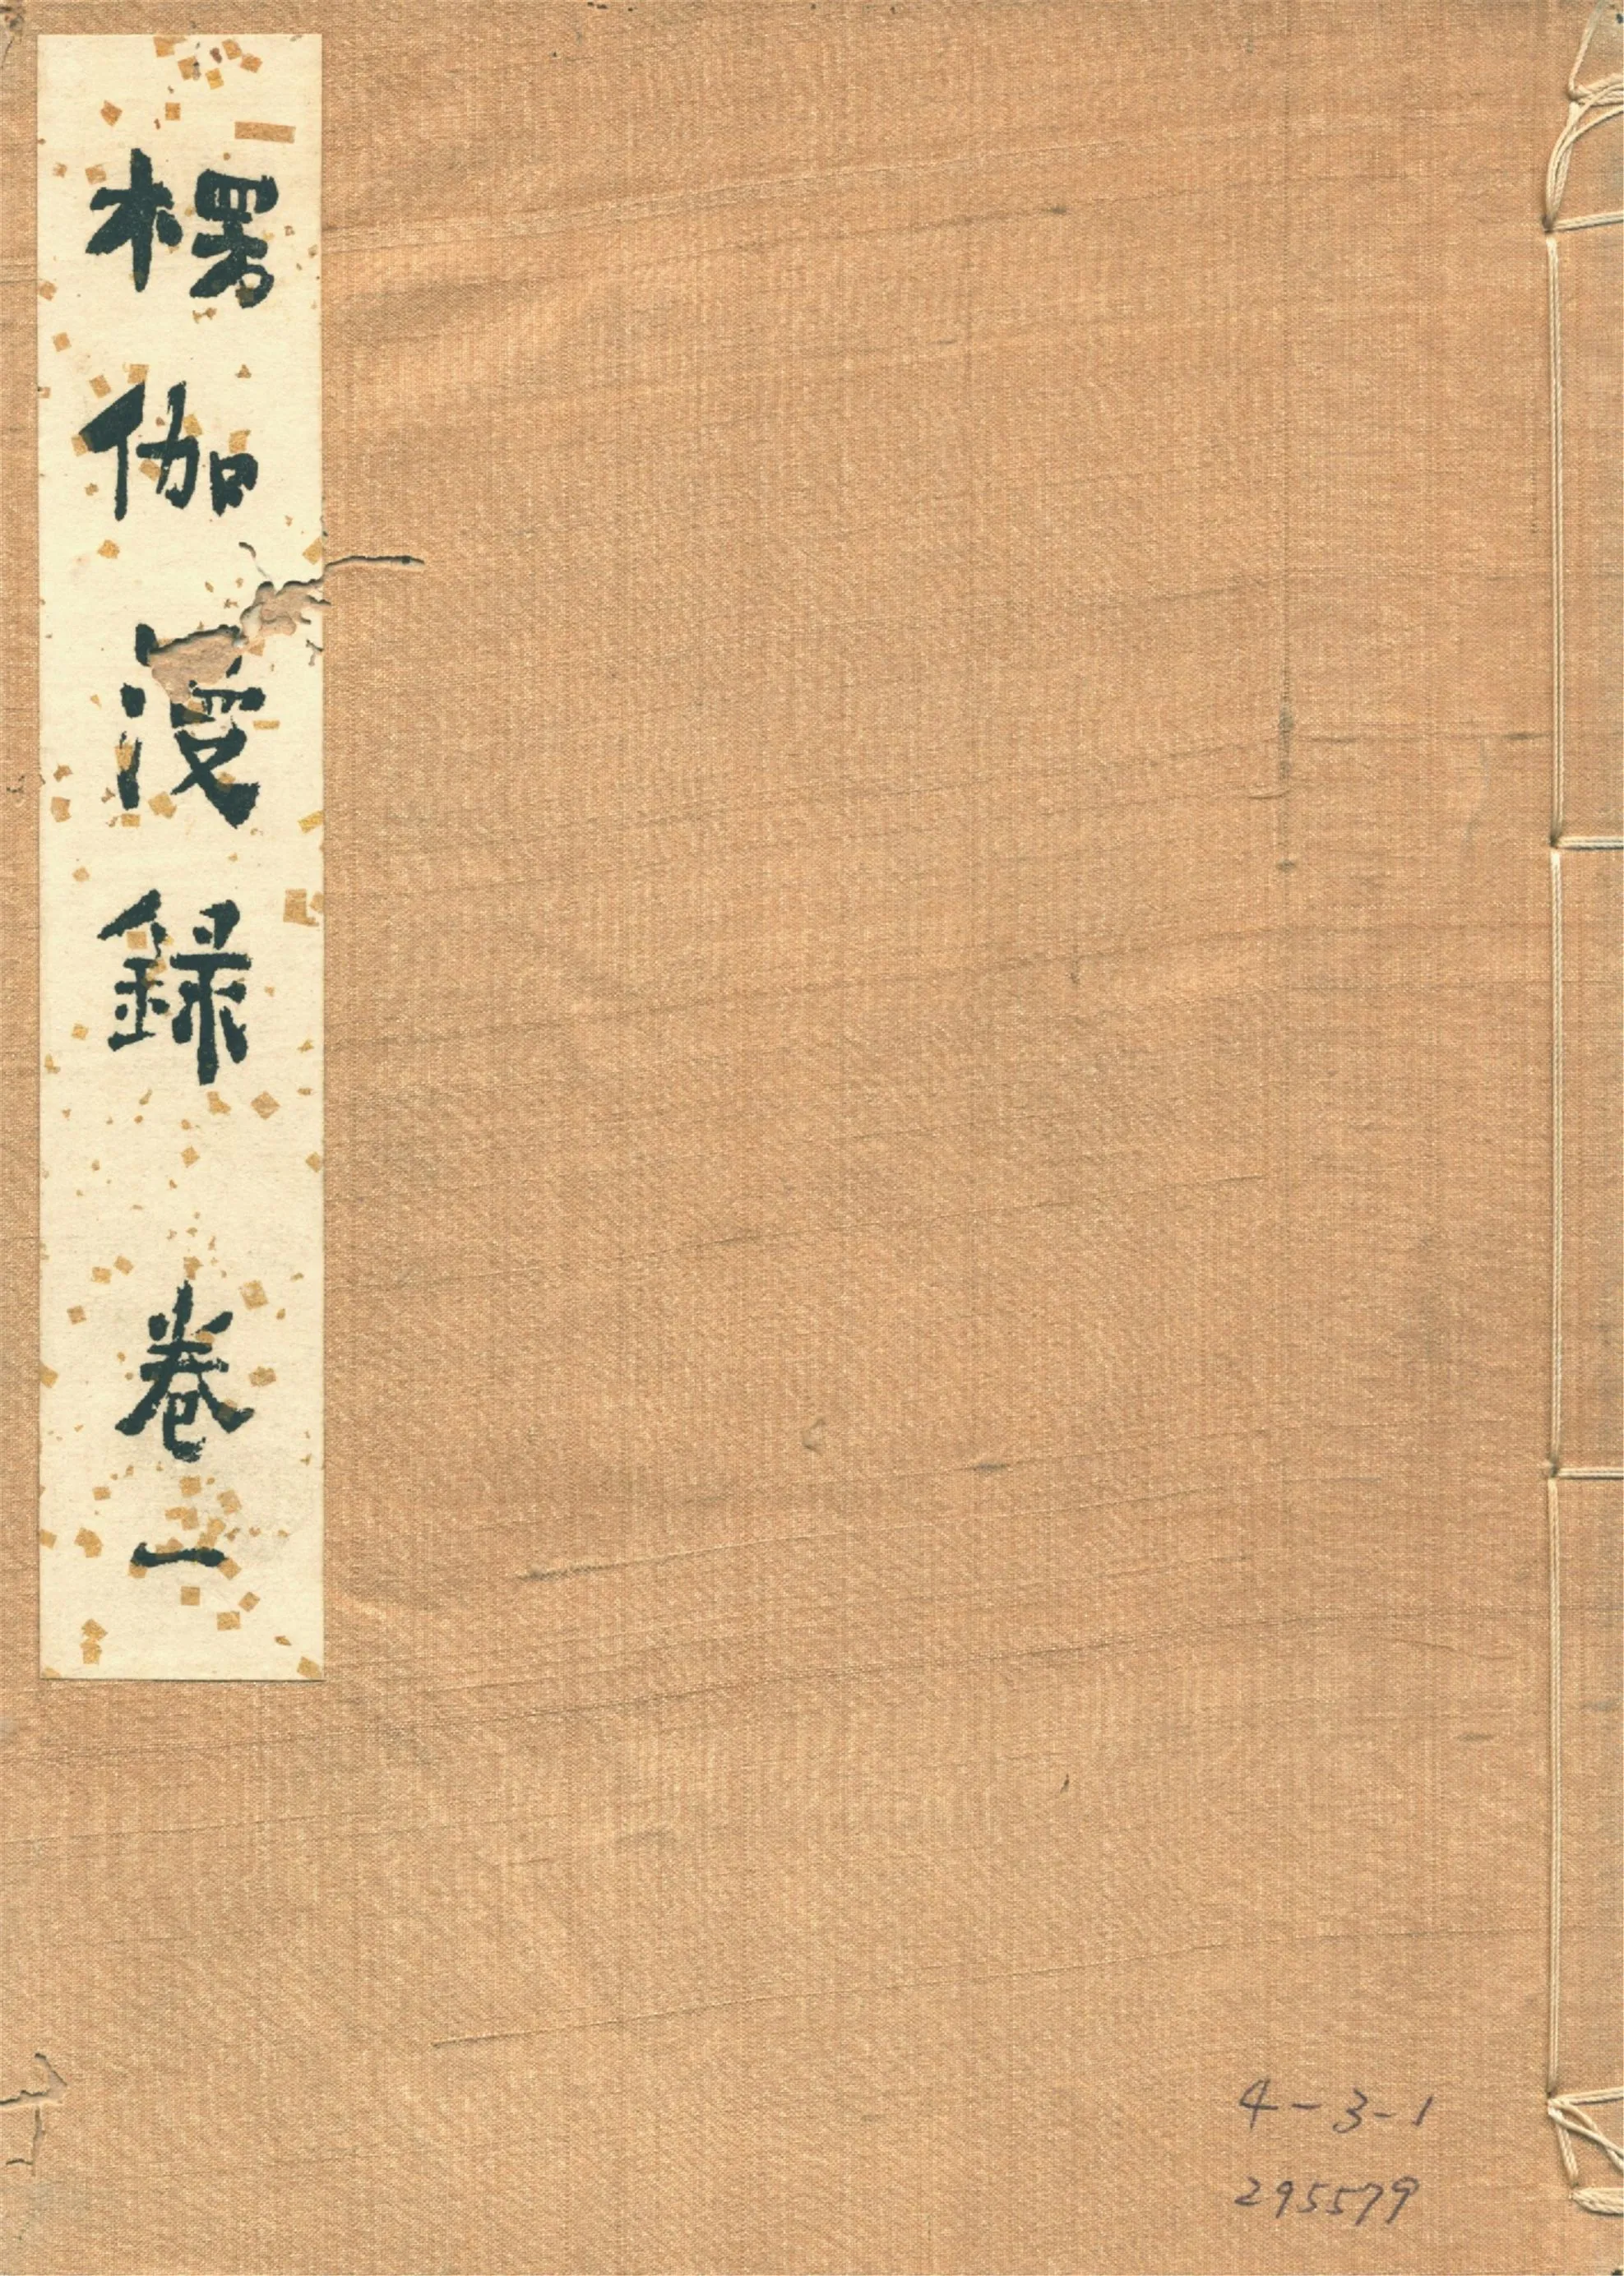 楞伽漫録 卷一
4-3-1
295579